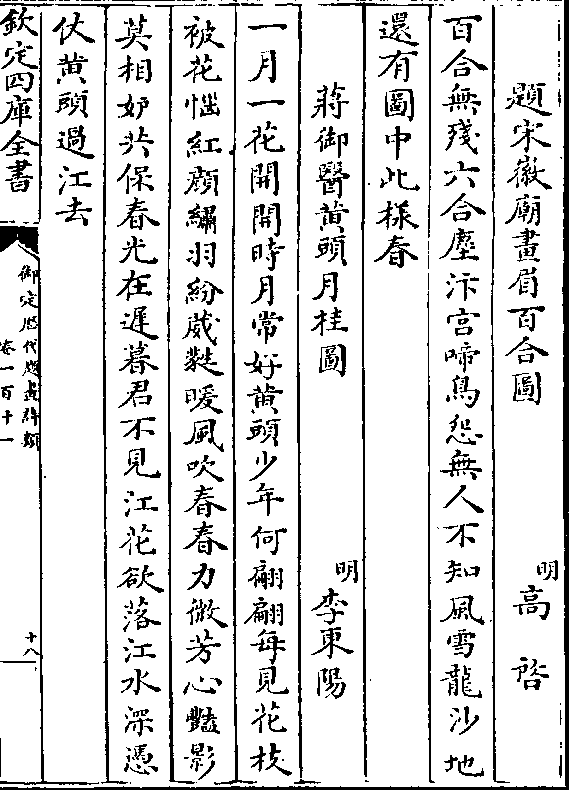 題宋徽廟畫眉百合圖 明高啓
百合無殘六合塵汴宮啼鳥怨無人不知風雪龍沙地
還有圖中此樣春
蔣御醫黄頭月桂圖 明李東陽
一月一花開開時月常好黄頭少年何翩翩每見花枝
被花惱紅顔繡羽紛葳蕤暖風吹春春力微芳心豔影
莫相妒共保春光在遲暮君不見江花欲落江水深憑
仗黄頭過江去
欽定四庫全書
御定歴代題畫詩類
卷一百十一
十八